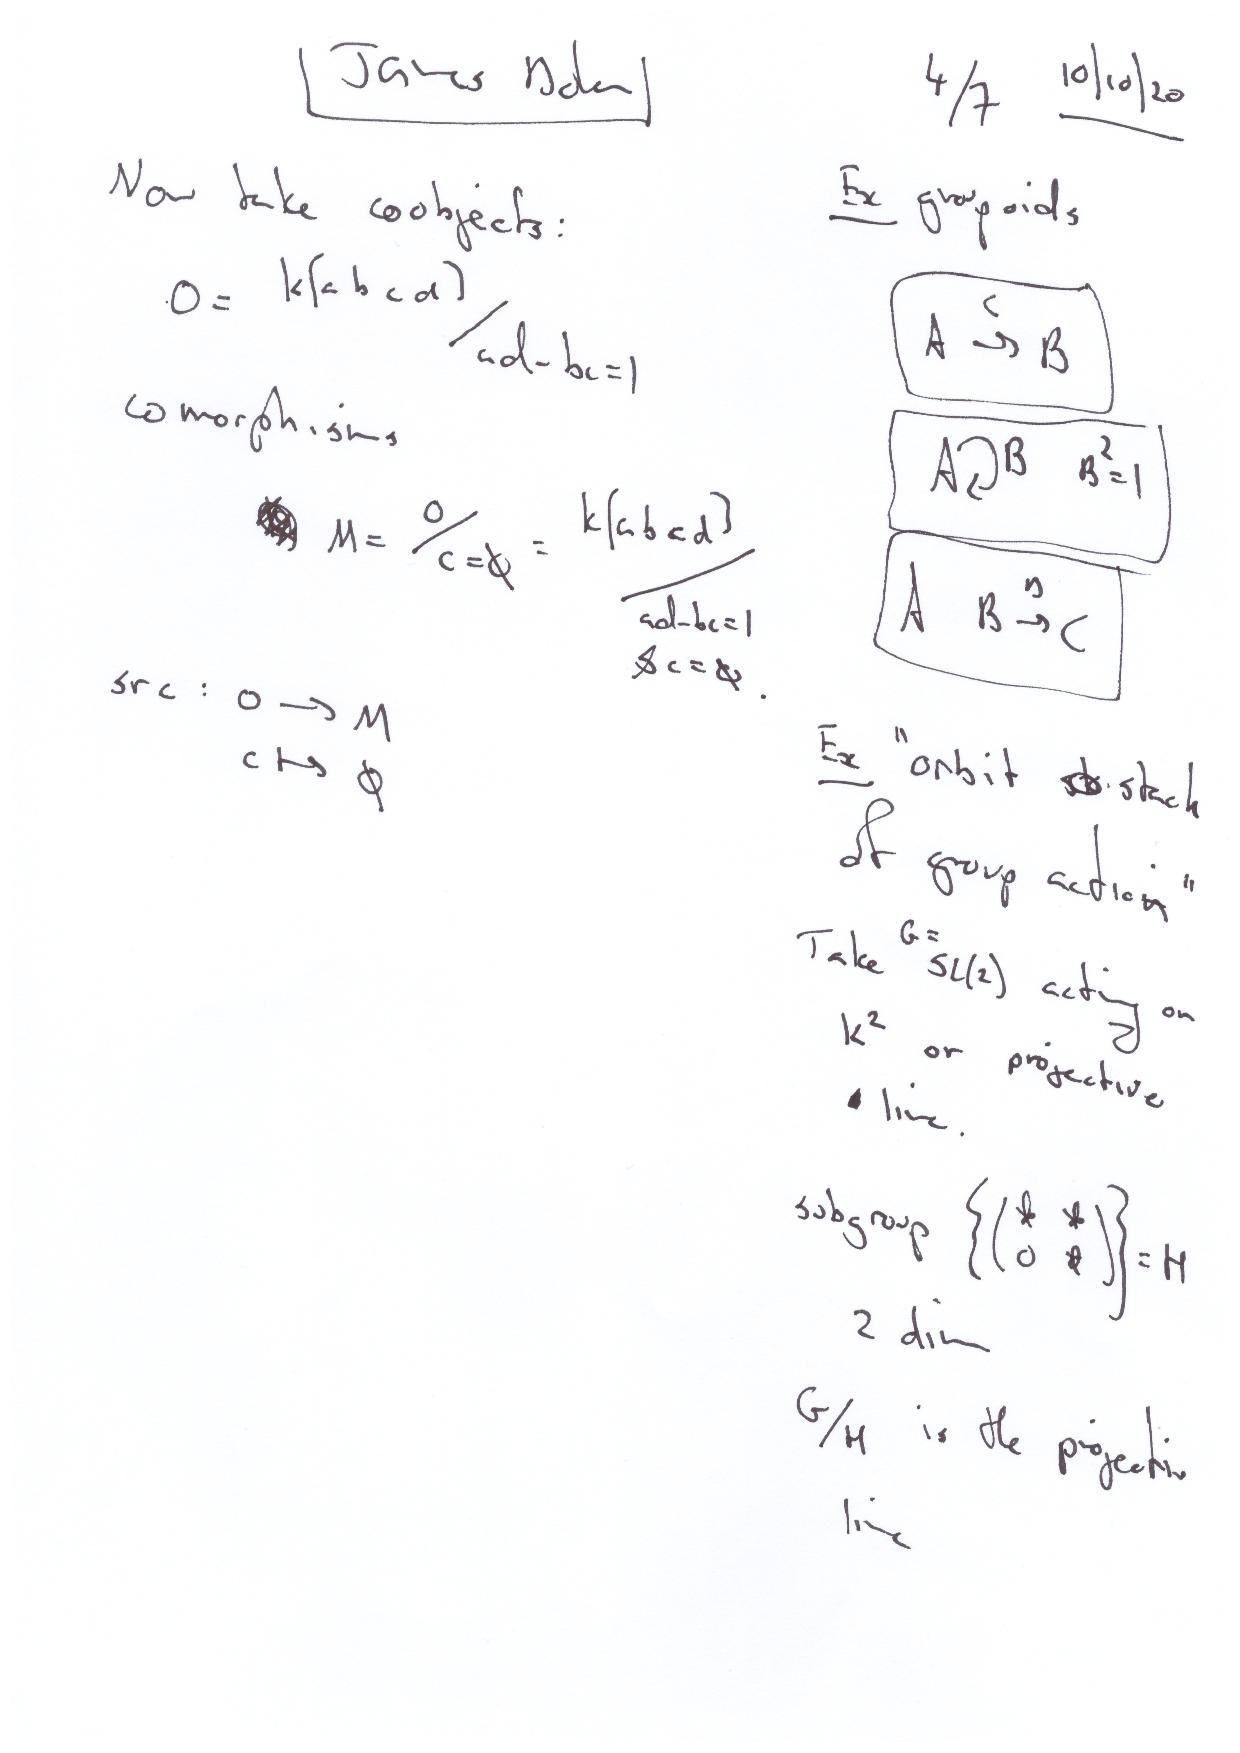 James Dolan
4/7 10/10/20
Now take coobjects:
O = k[a b c d] / ad-bc=1
comorphisms
M = O / c=0 = k[a b c d] / ad-bc=1
& c=0.
src : O → M
c ↦ 0
Ex groupoids
A →C B
A B B²=1
A B →D C
Ex "orbit stack
of group action"
Take G= SL(2) acting on
k² or projective
line.
subgroup {(* *
0 *)} = H
2 dim
G/H is the projective
line